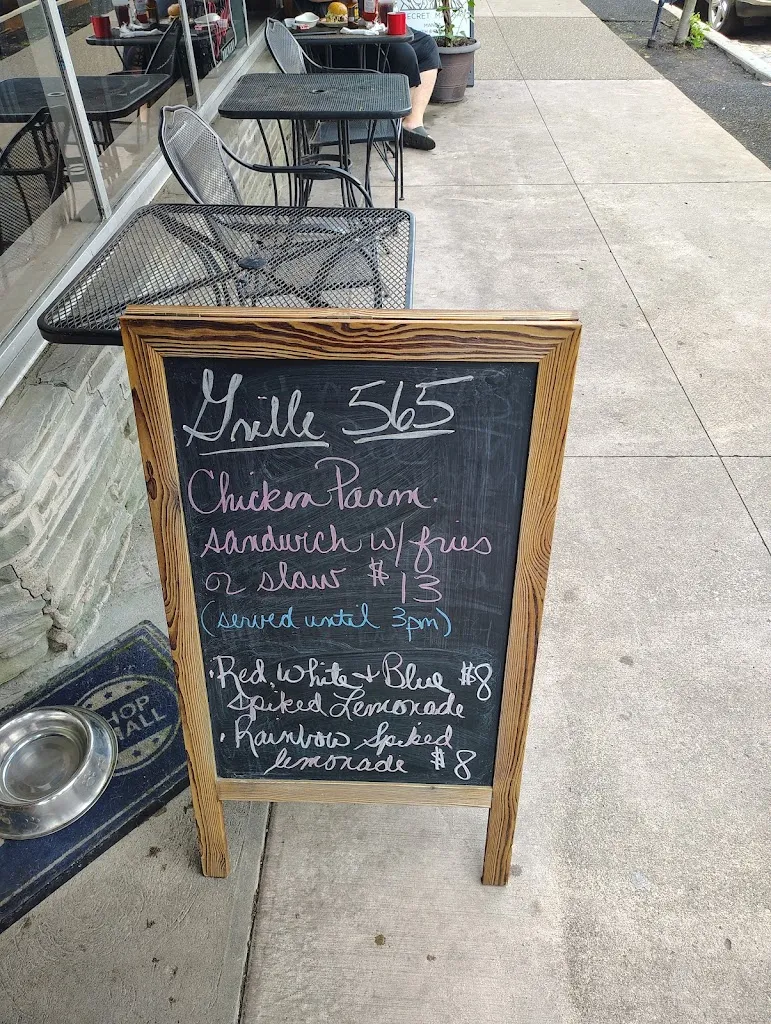 ECRET
Grille 565
Chicken Parm.
sandwich w/ fries
or slaw $13
(served until 3pm)
• Red, White + Blue $8
Spiked Lemonade
• Rainbow Spiked
lemonade $8
HOP
ALL